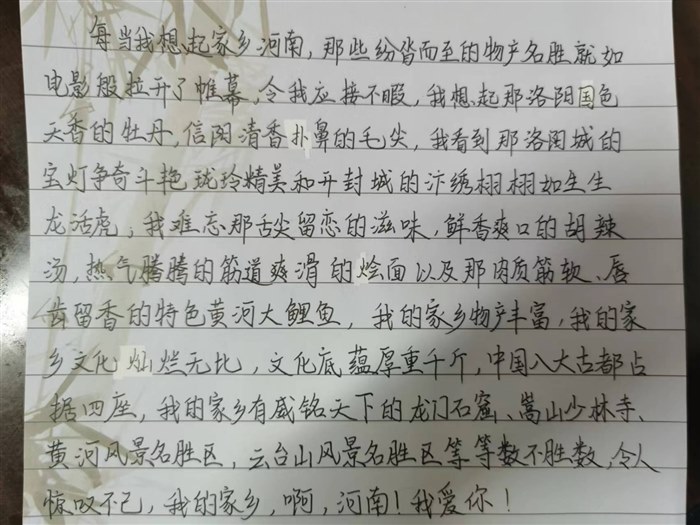 每当我想起家乡河南，那些纷沓而至的物产名胜就如
电影般拉开了帷幕，令我应接不暇，我想起那洛阳国色
天香的牡丹，信阳清香扑鼻的毛尖，我看到那洛阳城的
宝灯争奇斗艳，珑玲精美和开封城的汴绣栩栩如生生
龙活虎；我难忘那舌尖留恋的滋味，鲜香爽口的胡辣
汤，热气腾腾的筋道爽滑的烩面以及那肉质筋软、唇
齿留香的特色黄河大鲤鱼，我的家乡物产丰富，我的家
乡文化灿烂无比，文化底蕴厚重千斤，中国八大古都占
据四座，我的家乡有威铭天下的龙门石窟、嵩山少林寺、
黄河风景名胜区，云台山风景名胜区等等数不胜数，令人
惊叹不已，我的家乡，啊，河南！我爱你！